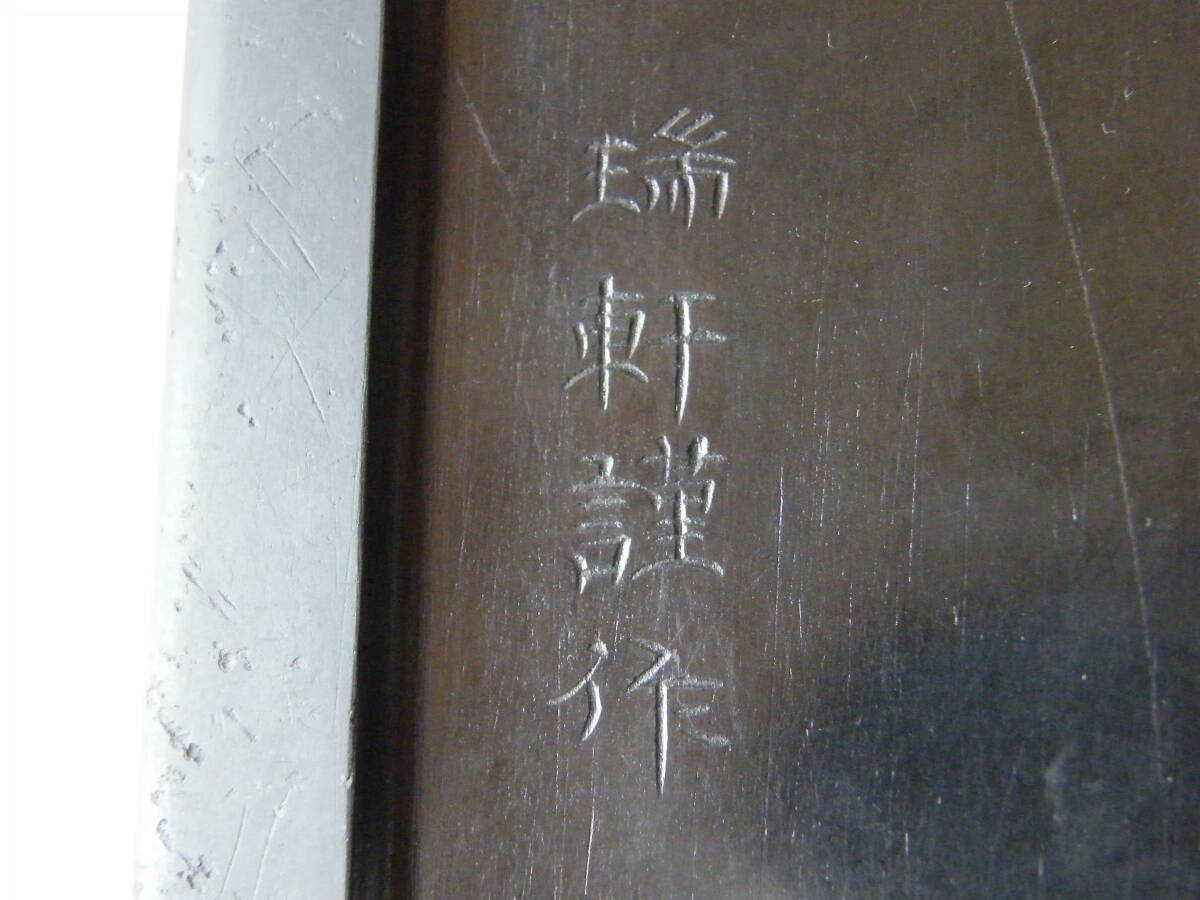 瑞軒謹作